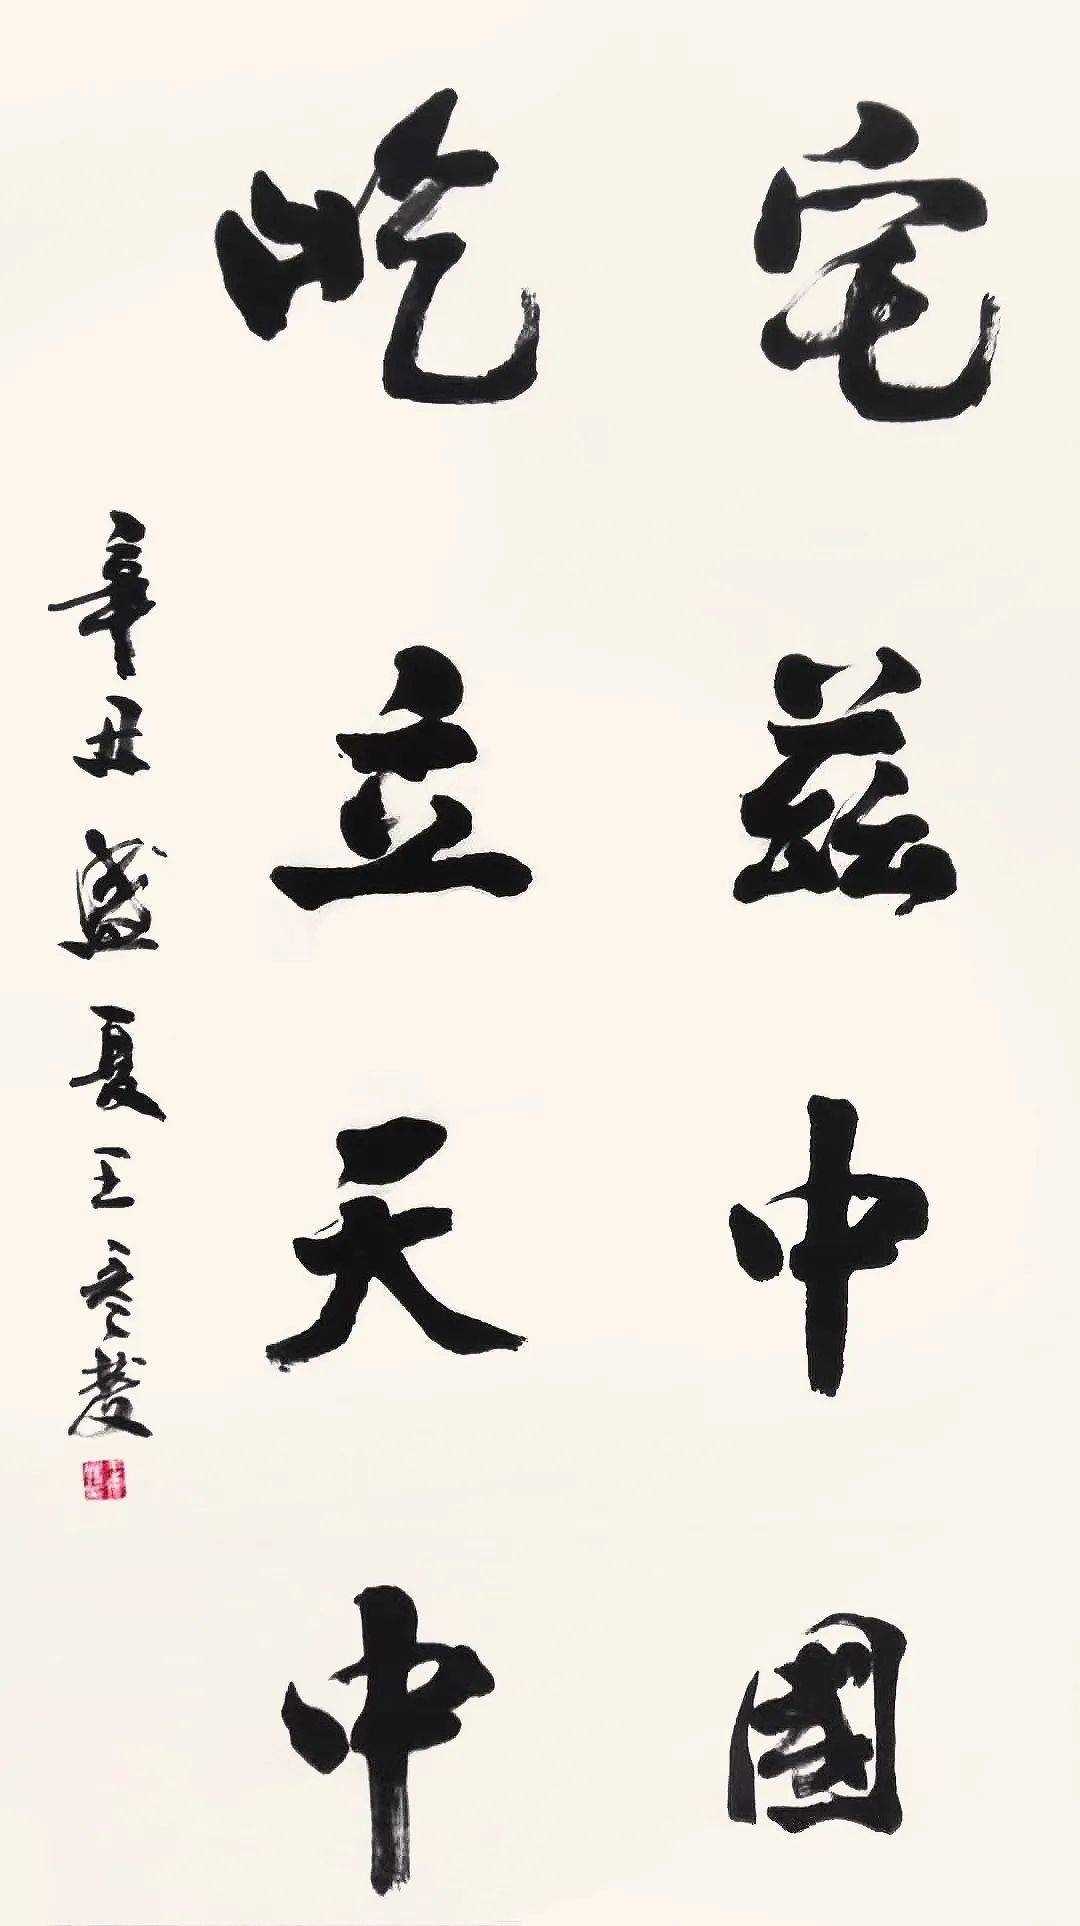 宅兹中國
屹立天中
辛丑盛夏王彦慶